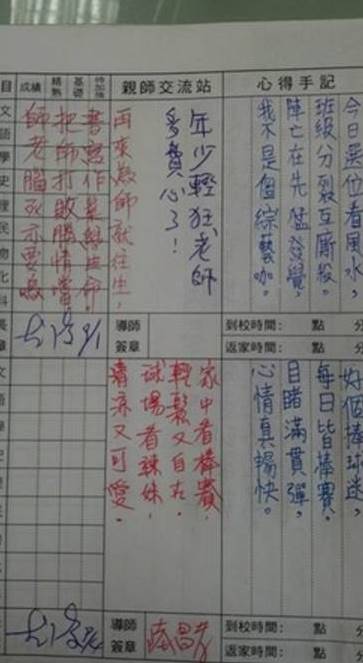 心得手記
今日選位看風水,
班級分裂互廝殺。
陣亡在先猛發覺,
我不是個綜藝咖。
親師交流站
年少輕狂,老師
多費心了!
再來為師就往生,
待加強
基礎
精熟
成績
書寫作業是
把師打敗勝情
師老腦死亦要
目
文
語
學
史
理
民
物
化
科
導師
簽章
到校時間: 點 分
返家時間: 點 分
好個棒球迷,
每日皆棒賽。
目睹滿貫彈,
心情真暢快。
家中看棒賽,
輕鬆又自在。
球場看辣妹,
清涼又可愛。
導師
簽章
到校時間: 點 分
返家時間: 點 分